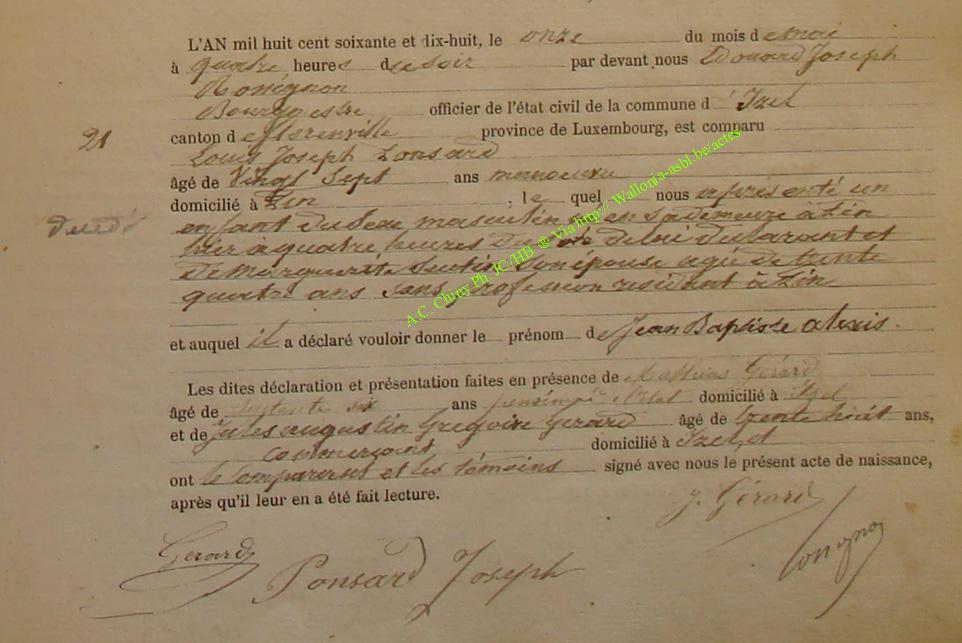 L'AN mil huit cent soixante et dix-huit, le onze du mois de mai
à quatre heures du soir par devant nous Edouard Joseph
Rossignon
Bourgmestre officier de l'état civil de la commune d'Izel
21
canton de Florenville province de Luxembourg, est comparu
Louis Joseph Ponsard
âgé de Vingt Sept ans manoeuvre
domicilié à Pin, le quel nous a présenté un
enfant du sexe masculin né en sa demeure à Pin
hier à quatre heures de lui déclarant et
de Marguerite son épouse agée de trente
quatre ans sans profession résident à Pin
et auquel il a déclaré vouloir donner le prénom de Jean Baptiste alexis.
Les dites déclaration et présentation faites en présence de Mathias Gérard
âgé de septante six ans pensionné domicilié à Izel
et de Jules augustin Grégoire Gerard âgé de trente huit ans,
commerçant domicilié à Izel, et
ont le comparant et les témoins signé avec nous le présent acte de naissance,
après qu'il leur en a été fait lecture.
J. Gérard
Gerard
Ponsard Joseph
Rossignon
A.C. Chiny Ph. JC/HB @ Via http// Wallonia-asbl.be/actes